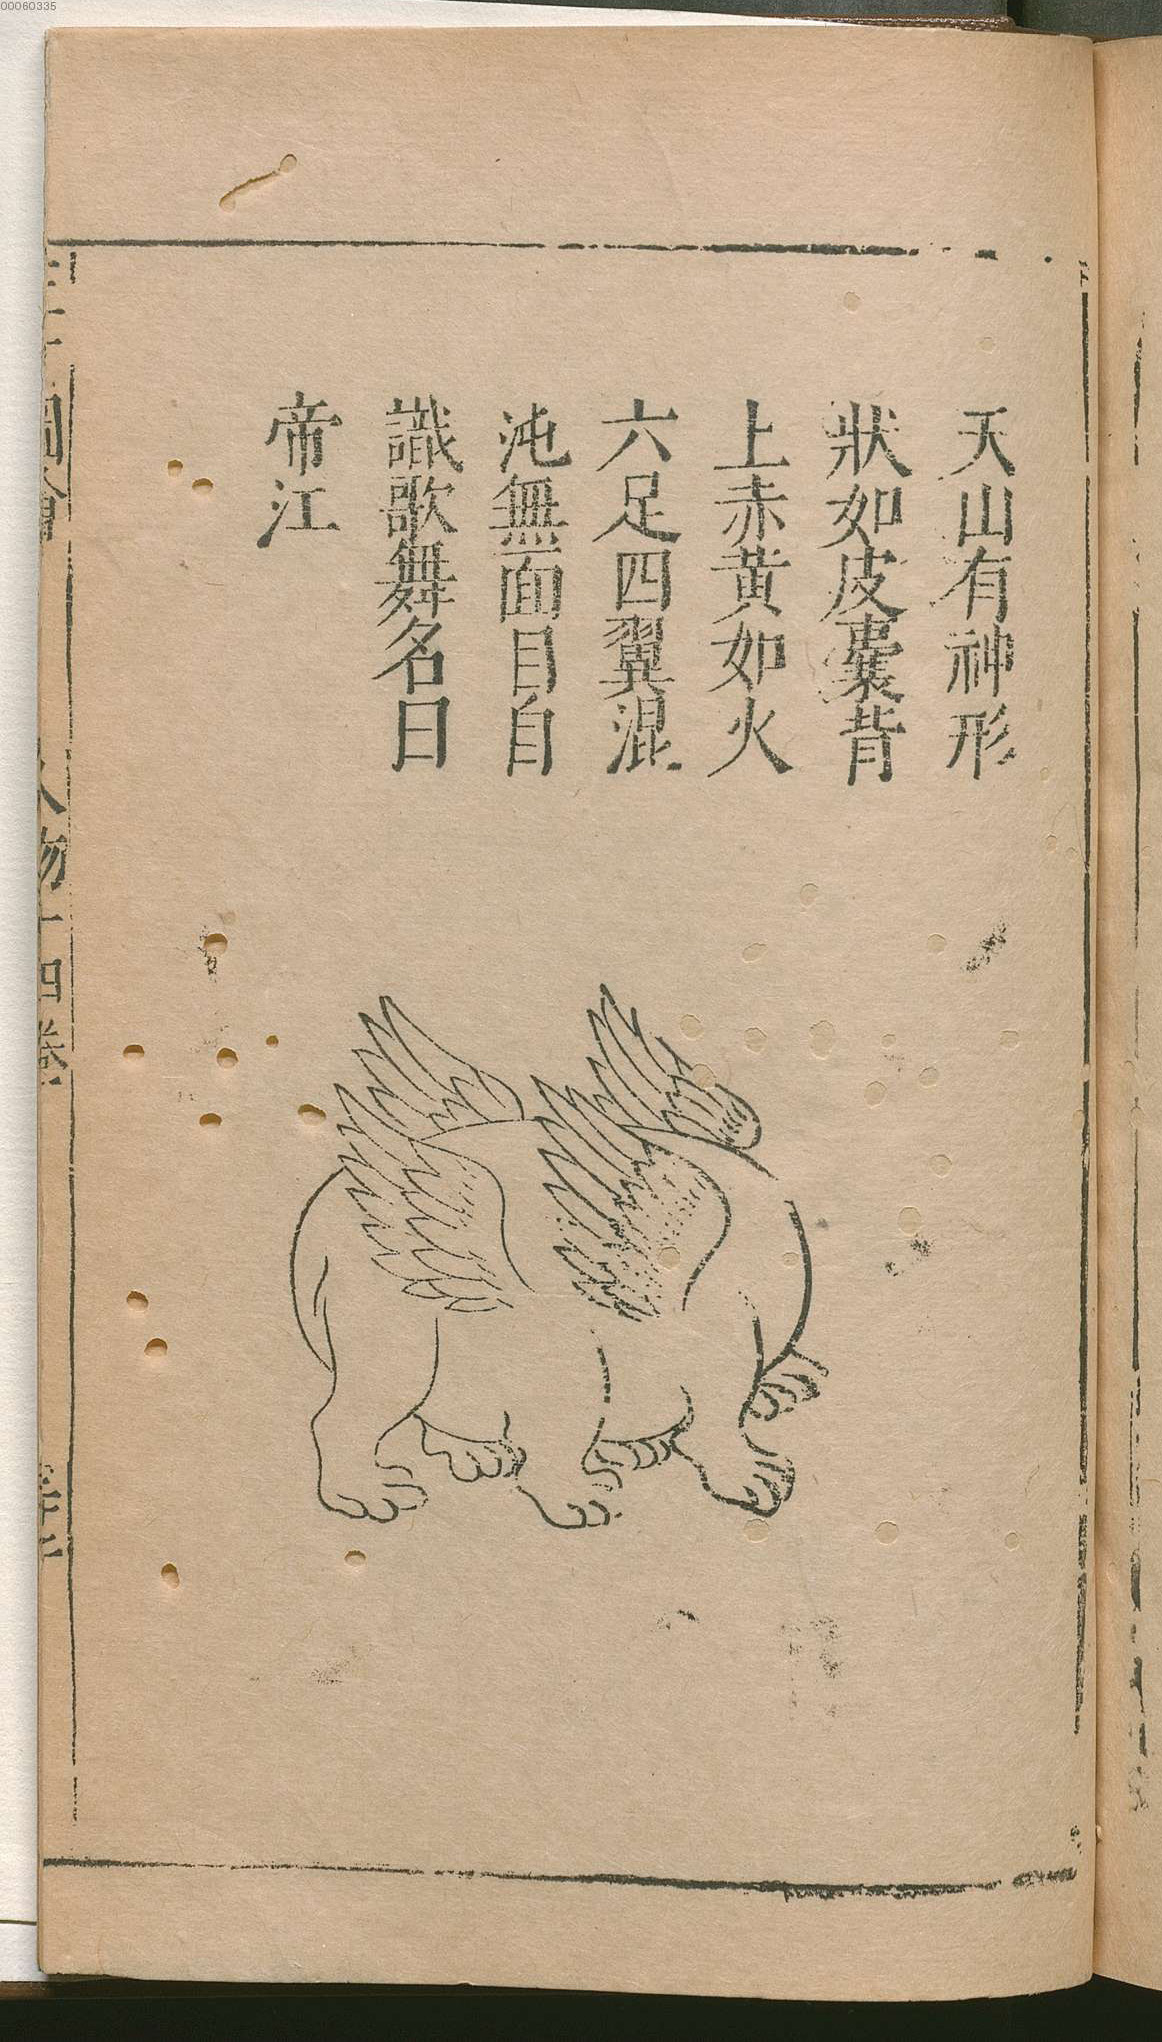 天山有神形
狀如皮囊背
上赤黄如火
六足四翼混
沌無面目自
識歌舞名曰
帝江
圖會
人物十四卷
00060335